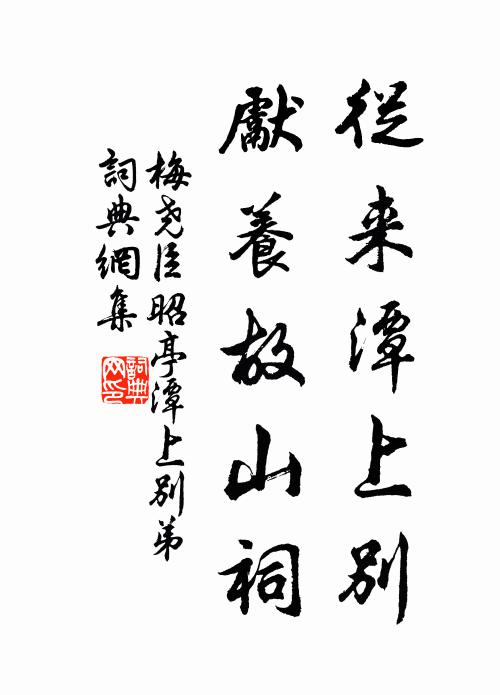 從来潭上別
獻養故山祠
梅尧臣昭亭潭上别弟
詞典網集
詞典网印